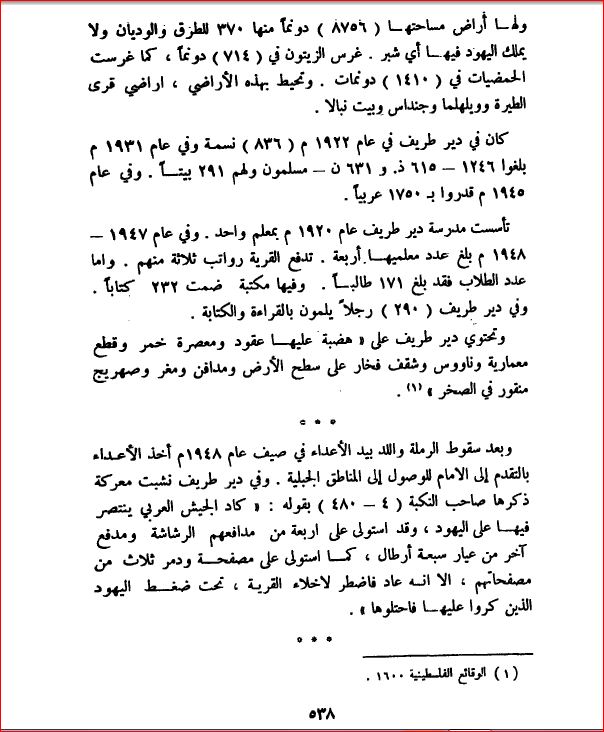 ولهـا أراض مساحتهـا ( ٨٧٥٦ ) دونماً منها ٣٧٠ للطرق والوديان ولا
يملك اليهود فيهـا أي شبر . غرس الزيتون في ( ٧١٤ ) دونماً ، كما غرست
الحمضيات في ( ١٤١٠ ) دونمات . وتحيط بهذه الأراضي ، اراضي قرى
الطيرة وويلهلما وجنداس وبيت نبالا .
كان في دير طريف في عام ١٩٢٢ م ( ٨٣٦ ) نسمة وفي عام ١٩٣١ م
بلغوا ١٢٤٦ – ٦١٥ ذ. و ٦٣١ ن – مسلمون ولهم ٢٩١ بيتـاً . وفي عام
١٩٤٥ م قدروا بـ ١٧٥٠ عربياً .
تأسست مدرسة دير طريف عام ١٩٢٠ م بمعلم واحد . وفي عام ١٩٤٧ –
١٩٤٨ م بلغ عدد معلميهـا أربعة . تدفع القرية رواتب ثلاثة منهم . واما
عدد الطلاب فقد بلغ ١٧١ طالبـاً . وفيها مكتبة ضمت ٢٣٢ كتاباً .
وفي دير طريف ( ٢٩٠ ) رجلاً يلمون بالقراءة والكتابة .
وتحتوي دير طريف على « هضبة عليهـا عقود ومعصرة خمر وقطع
معمارية وناووس وشقف فخار على سطح الأرض ومدافن ومغر وصهريج
منقور في الصخر » (١) .
* * *
وبعد سقوط الرملة واللد بيد الأعداء في صيف عام ١٩٤٨م أخذ الأعـداء
بالتقدم إلى الامام للوصول إلى المناطق الجبلية . وفي دير طريف نشبت معركة
ذكرها صاحب النكبة ( ٤ – ٤٨٠ ) بقوله : « كاد الجيش العربي ينتصر
فيهـا على اليهود ، وقد استولى على اربعة من مدافعهم الرشاشة ومدفع
آخر من عيار سبعة أرطال ، كمـا استولى على مصفحـة ودمر ثلاث من
مصفحاتهم ، الا انـه عاد فاضطر لاخلاء القريـة ، تحت ضغـط اليهود
الذين كروا عليهـا فاحتلوها » .
* * *
( ١ ) الوقائع الفلسطينية ١٦٠٠ .
٥٣٨